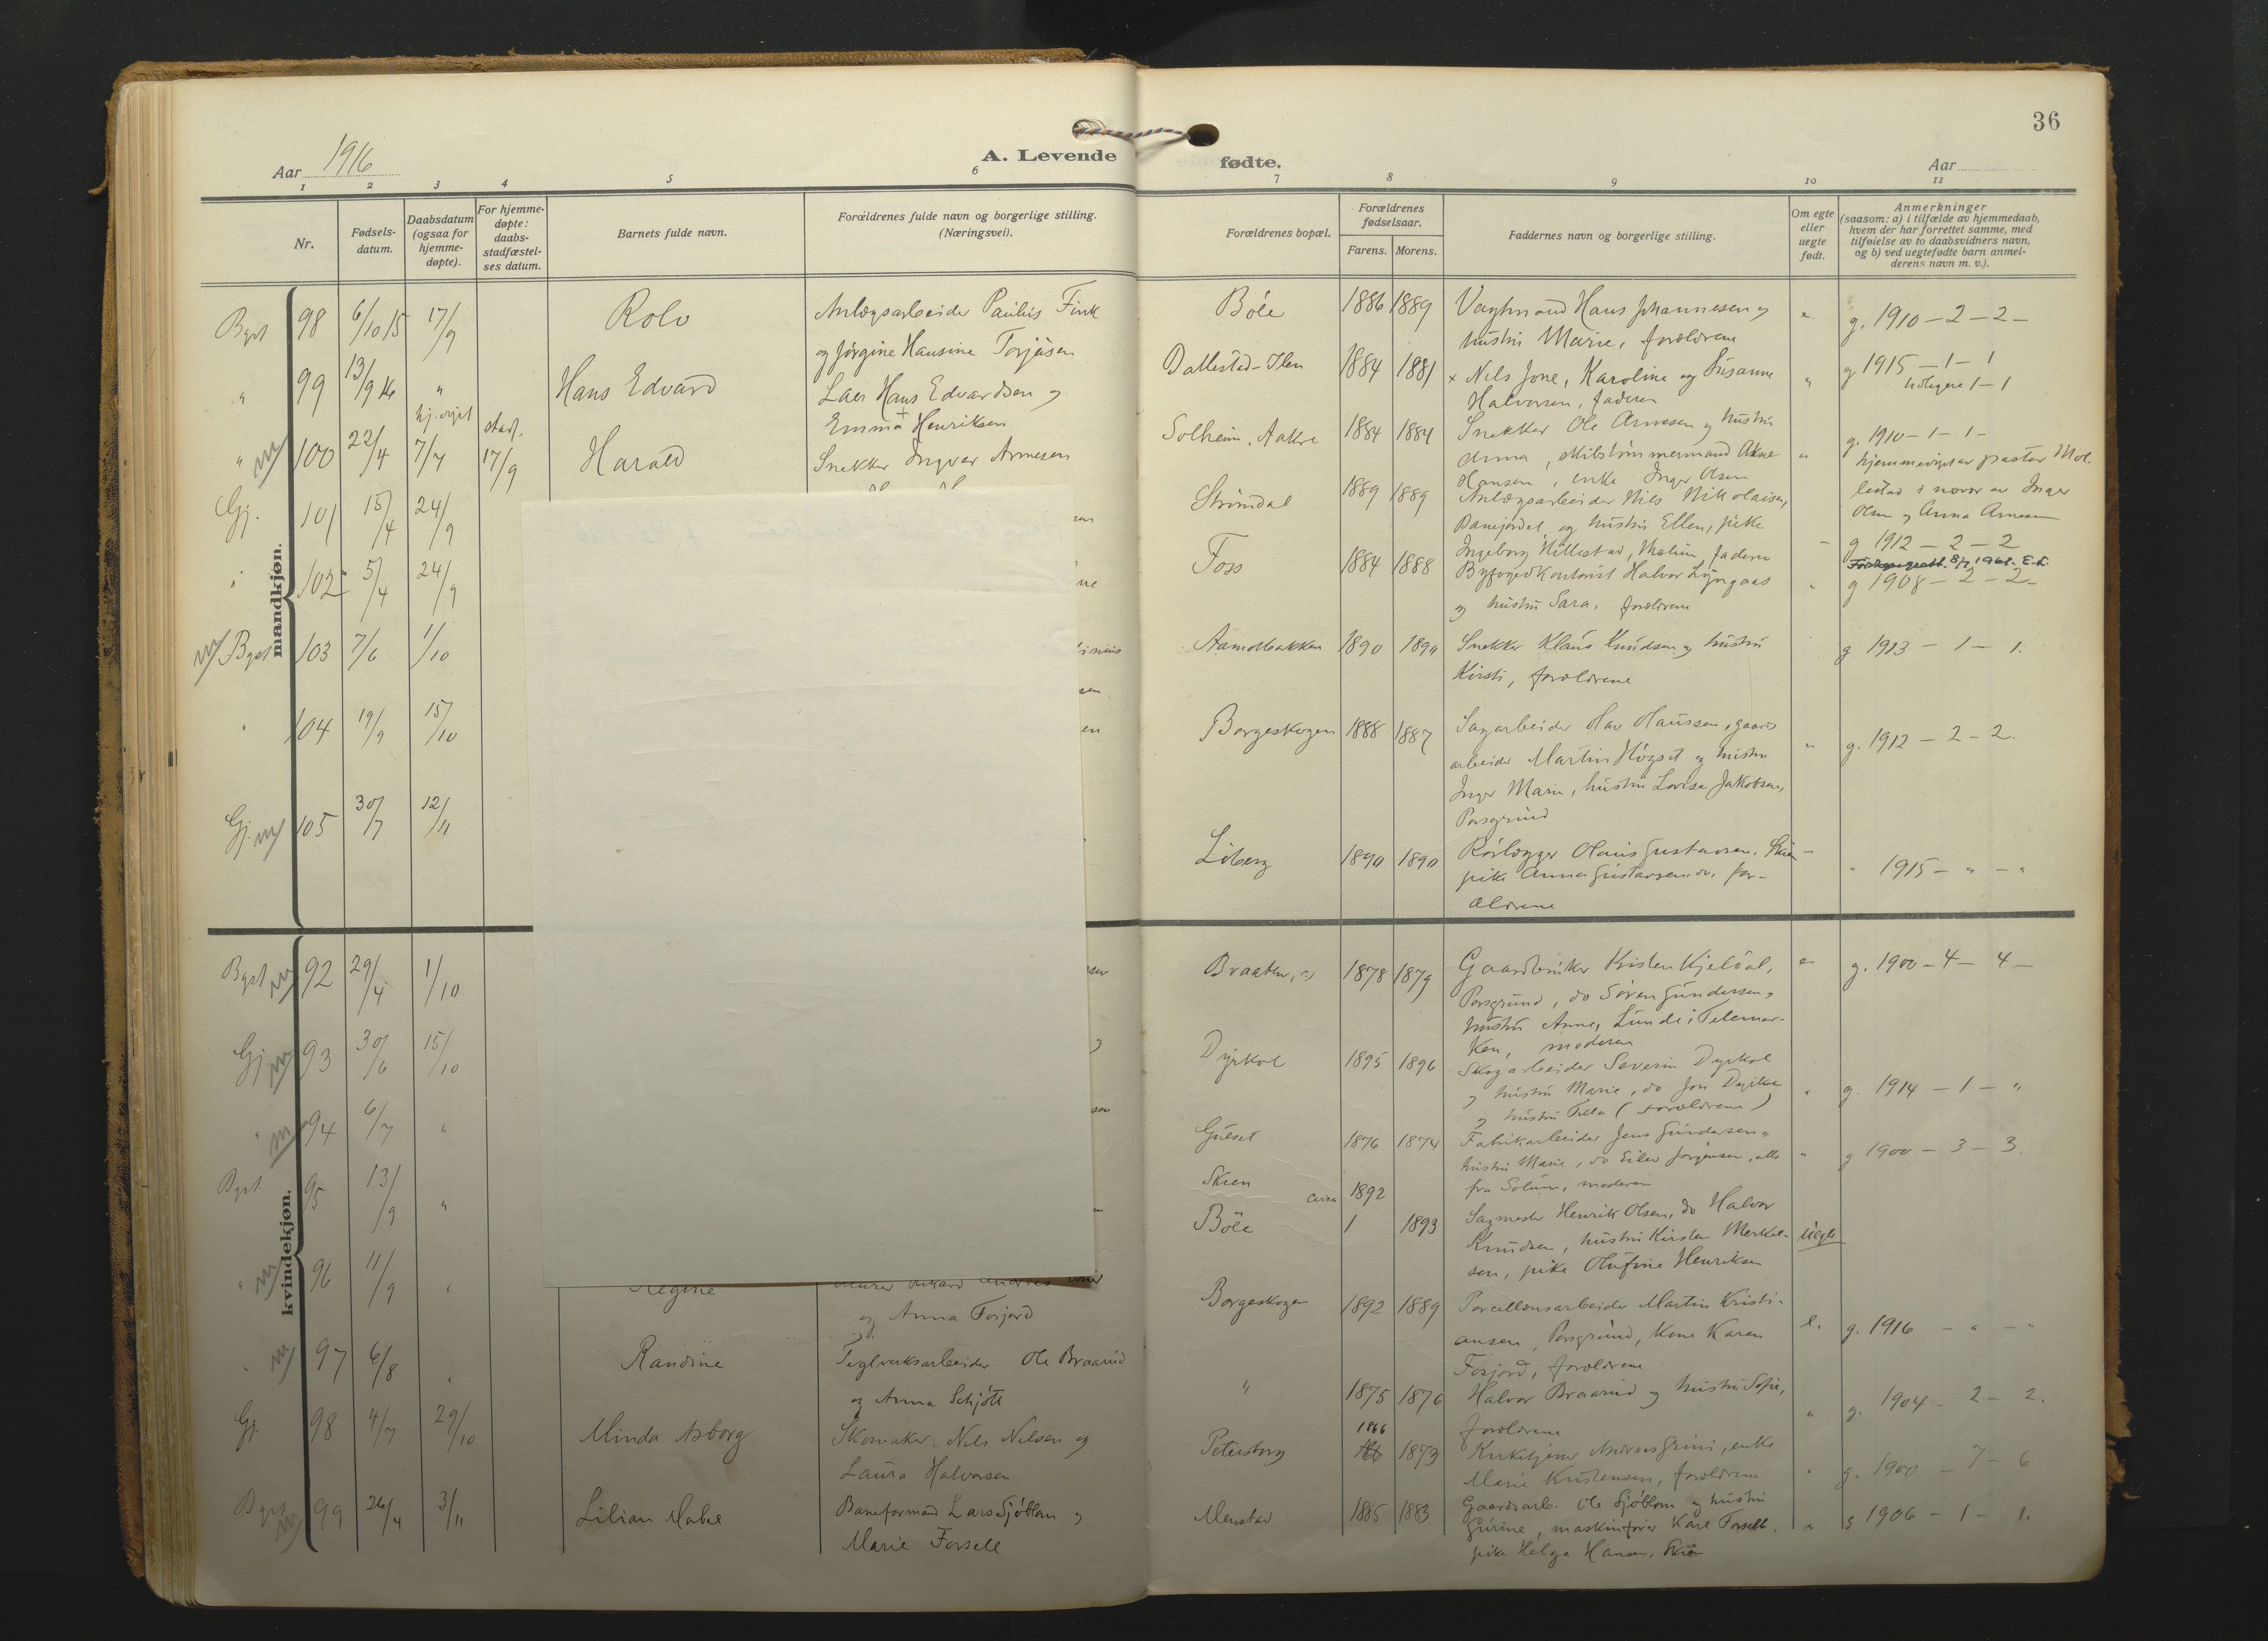 36
Aar 1916
A. Levende
fødte.
Aar
1 2 3 4 5 6 7 8 9 10 11
Nr.
Fødsels-
datum.
Daabsdatum
(ogsaa for
hjemme-
døpte).
For hjemme-
døpte:
daabs-
stadfæstel-
ses datum.
Barnets fulde navn.
Forældrenes fulde navn og borgerlige stilling.
(Næringsvei).
Forældrenes bopæl.
Forældrenes
fødselsaar.
Farens. Morens.
Faddernes navn og borgerlige stilling.
Om egte
eller
uegte
født.
Anmerkninger
(saasom: a) i tilfælde av hjemmedaab,
hvem der har forrettet samme, med
tilføielse av to daabsvidners navn,
og b) ved uegtefødte barn anmel-
derens navn m. v.).
mandkjøn.
Bgst 98 6/10 15 17/9 Rolv Anlægsarbeider Paulus Fink
og Jørgine Hansine Torjusen
Böle 1886 1889 Vagtmand Hans Johannesen og
hustru Marie, forældrene
e. g. 1910 - 2 - 2 -
" 99 13/9 16 " Hans Edvard Laer Hans Edvardsen og
Emma Henriksen
Dallestad-Ilen 1884 1881 x Nils Jone, Karoline og Susanne
Halvorsen, faderen
" g 1915 - 1 - 1
tidligere 1 - 1
" 100 22/4 7/7 stadf. 17/9 Harald Snekker Ingvar Arnesen
Solheim, Aakre 1884 1884 Snekker Ole Arnesen og hustru
Anna, skibstømmermand
Hansen, enke Inger Olsen
" g. 1910 - 1 - 1 -
hjemmedøpt av pastor Mol-
lestad i nærvær av Inger
Olsen og Anna Arnesen
Gj. 101 15/4 24/9
Strömdal 1889 1889 Anlægsarbeider Nils Nikolaisen,
Banejordet, og hustru Ellen, pike
Ingeborg Hillestad, faderen
g 1912 - 2 - 2
102 5/4 24/9
Foss 1884 1888 Byfogedkontorist Halvor Lyngaas
og hustru Sara, forældrene
g 1908 - 2 - 2 -
Bgst 103 7/6 1/10
Aamotbakken 1890 1890 Snekker Klaus Knudsen og hustru
Kirsti, forældrene
g 1913 - 1 - 1.
" 104 19/9 15/10
Borgeskogen 1888 1887 Sagarbeider Olav Olaussen, gaards
arbeider Martin Högset og hustru
Inger Marie, hustru Lovise Jakobsen,
Porsgrund
" g. 1912 - 2 - 2.
Gj. 105 30/7 12/11
Liberg 1890 1890 Rörlægger Olaus Gustavsen, Skien
pike Anna Gustavsen do. for-
ældrene
" 1915 - " - "
kvindekjøn.
Bgst 92 29/4 1/10
Braaten 1878 1879 Gaardbruker Kristen Kjeldal,
Porsgrund, do Sören Gundersen,
hustru Anne, Lunde i Telemar-
ken, moderen
e. g. 1900 - 4 - 4 -
Gj. 93 30/6 15/10
Dyrkol 1895 1896 Skogarbeider Severin Dyrkol
og hustru Marie, do Jon
og hustru Tilla (forældrene)
" g. 1914 - 1 - "
" 94 6/7 "
Gulset 1876 1874 Fabrikarbeider Jens Gundersen,
hustru Marie, do Eilev Jörgensen, alle
fra Solum, moderen
" g 1900 - 3 - 3.
Bgst. 95 13/9 "
Skien circa 1892
Böle 1 1893 Sagmester Henrik Olsen, do Halvor
Knudsen, hustru Kirsten Merkel-
sen, pike Olufine Henriksen
uegte
" 96 11/9 " Regine
og Anna Fosjord
Borgeskogen 1892 1889 Porcellænsarbeider Martin Kristi-
ansen, Porsgrund, kone Karen
Fosjord, forældrene
e. g. 1916 - " - "
" 97 6/8 " Randine Teglverksarbeider Ole Braarud
og Anna Schjött
" 1875 1876 Halvor Braarud og hustru Sofie,
forældrene
" g. 1904 - 2 - 2.
Gj. 98 4/7 29/10 Minda Asborg Skomaker Nils Nilsen og
Laura Halvorsen
Petersborg 1866 1873 Kirketjener Andreas Grini, enke
Marie Kristensen, forældrene
" g. 1900 - 7 - 6
Bgst 99 26/4 3/11 Lilian Mabel Baneformand Lars Sjöblom og
Marie Forsell
Menstad 1885 1883 Gaardsarb. Ole Sjöblom og hustru
Gurine, maskinfører Karl Forsell,
pike Helga Hansen, Skien
" g 1906 - 1 - 1.